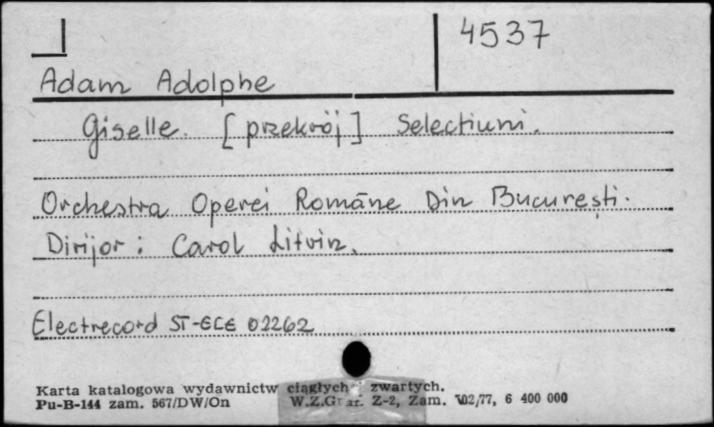 4537
Adam Adolphe
Giselle. [przekrój] Selectiuni.
Orchestra Operei Române Din București.
Dirijor: Carol Litvin.
Electrecord ST-ECE 02262
Karta katalogowa wydawnictw ciągłych i zwartych.
Pu-B-144 zam. 567/DW/On W.Z.Graf. Z-2, Zam. 102/77, 6 400 000